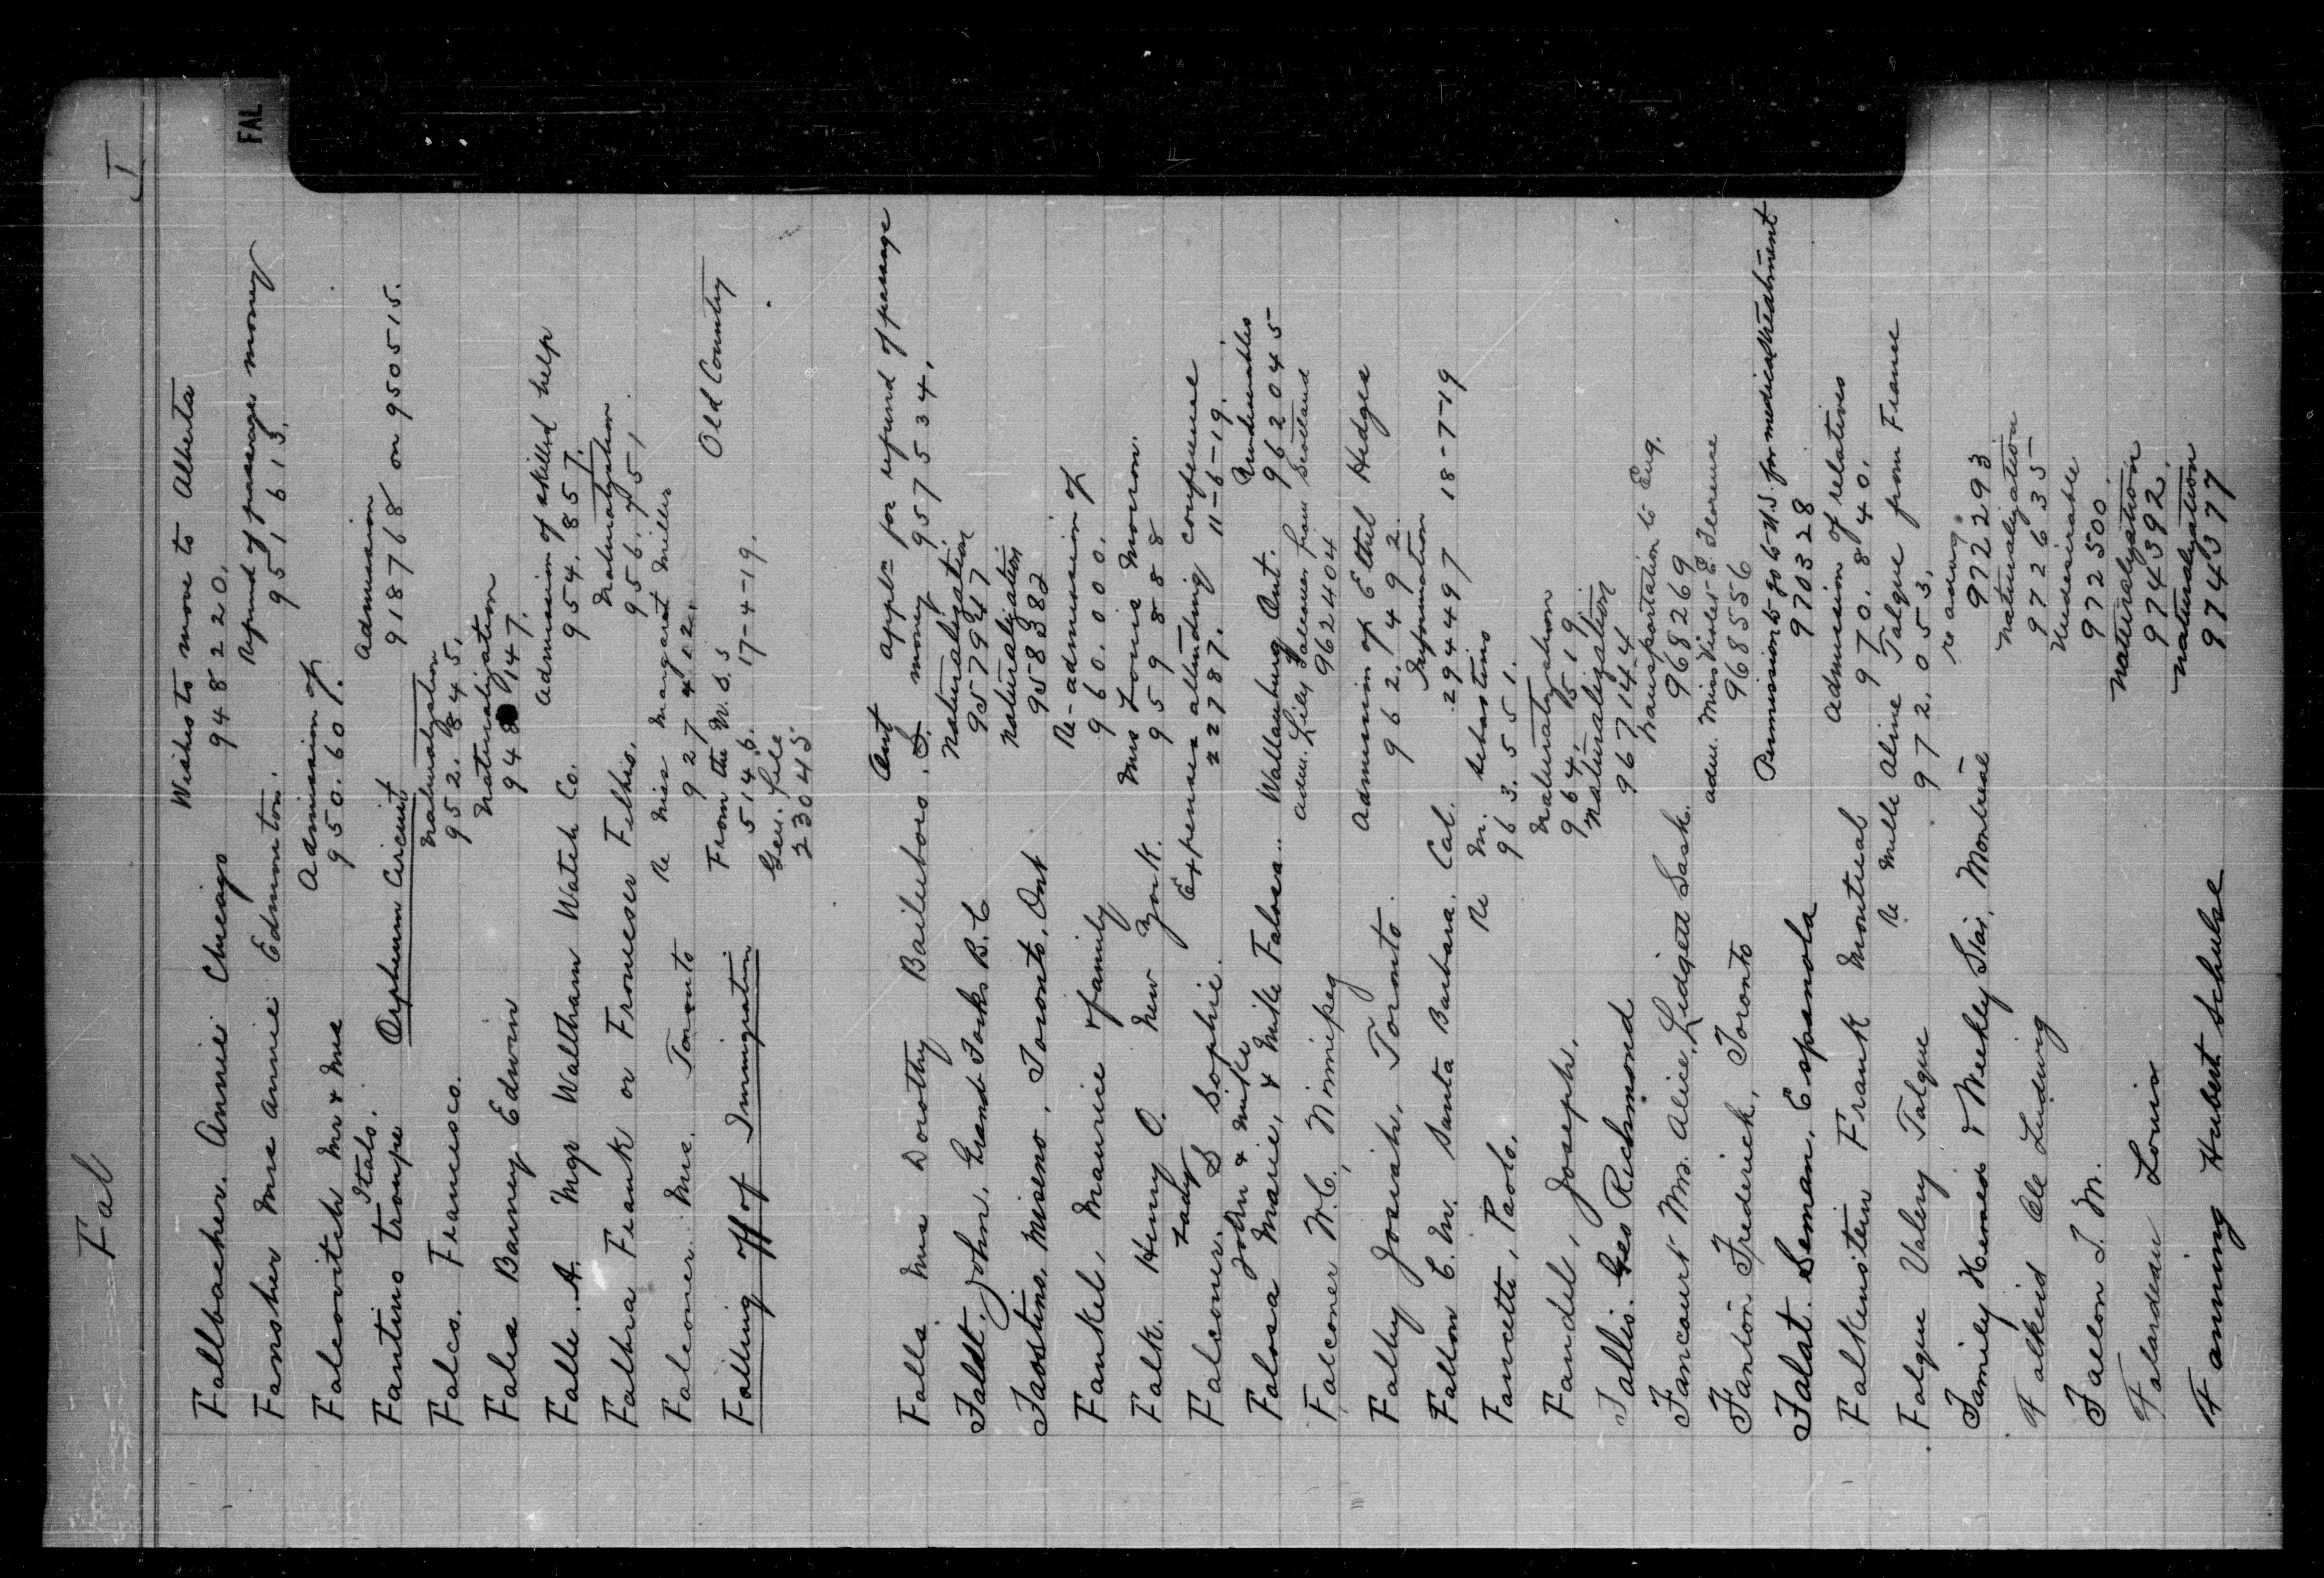 Fal
FAL
Fallbacher. Annie Chicago Wishes to move to Alberta
948220.
Fansher Mrs Annie Edmonton. Refund of passage money
951613.
Falcovitch Mr & Mrs Admission of
950.607.
Fantino troupe Orpheum Circuit Admission
Italo.
918768 on 950515.
Falco. Francesco. Naturalization
952.845.
Fales Barney Edwin Naturalization
948 147.
Falle. A. Mgr Waltham Watch Co. Admission of skilled help
954.857.
Falhra Frank or Froneser Felhis. Naturalization
956.751.
Falconer Mrs. Toronto Re Miss Margaret Miller
927402.
Falling off of Immigration From the U.S.S Old Country
5146. 17-4-19.
Gen. file
23045
Falls Mrs Dorothy Bailieboro. Ont Appln for refund of passage
money 957534.
Faldt. John. Grand Forks B.C Naturalization
957947
Faostino, Miseno, Toronto, Ont Naturalization
958382
Fankel, Maurice & family Re-admission of
960.000.
Falk. Henry O. New York. Mrs Lonie Moron.
959888
Falconer. Lady S Sophie. Expenses attending conference
22787. 11-6-19.
Falosa Marie, & Mike Falosa. Wallaceburg Ont. Undesirables
John & Mike
962045
Falconer W.C, Winnipeg adm. Lily Falconer from Scotland
962404
Falby Josiah, Toronto. Admission of Ethel Hedges
962.7492.
Fallon C. M. Santa Barbara. Cal. Information
294497 18-7-19
Fancetti, Paolo. Re M. Sebastino
963.551.
Fandel, Joseph. Naturalization
964.519.
Fallis. Geo Richmond Naturalization
967144
Fancourt Mrs. Alice, Lidgett Sask. Transportation to Eng.
968269
Fanton Frederick, Toronto adm. Miss Violet E. Florence
968556
Falat. Seman. Espanola Permission to go to U.S. for medical treatment
970328
Falkenstein Frank Montreal Admission of relatives
970.840.
Falque Valery Falque Re Melle Aline Falque from France
972.053.
Family Herald & Weekly Star, Montreal re advg
972293
Falkeid Ole Ludwig Naturalization
972635
Fallon J. M. Undesirable
972500.
Falardeau Louis Naturalization
974392.
Fanning Hubert Schulse Naturalization
974377